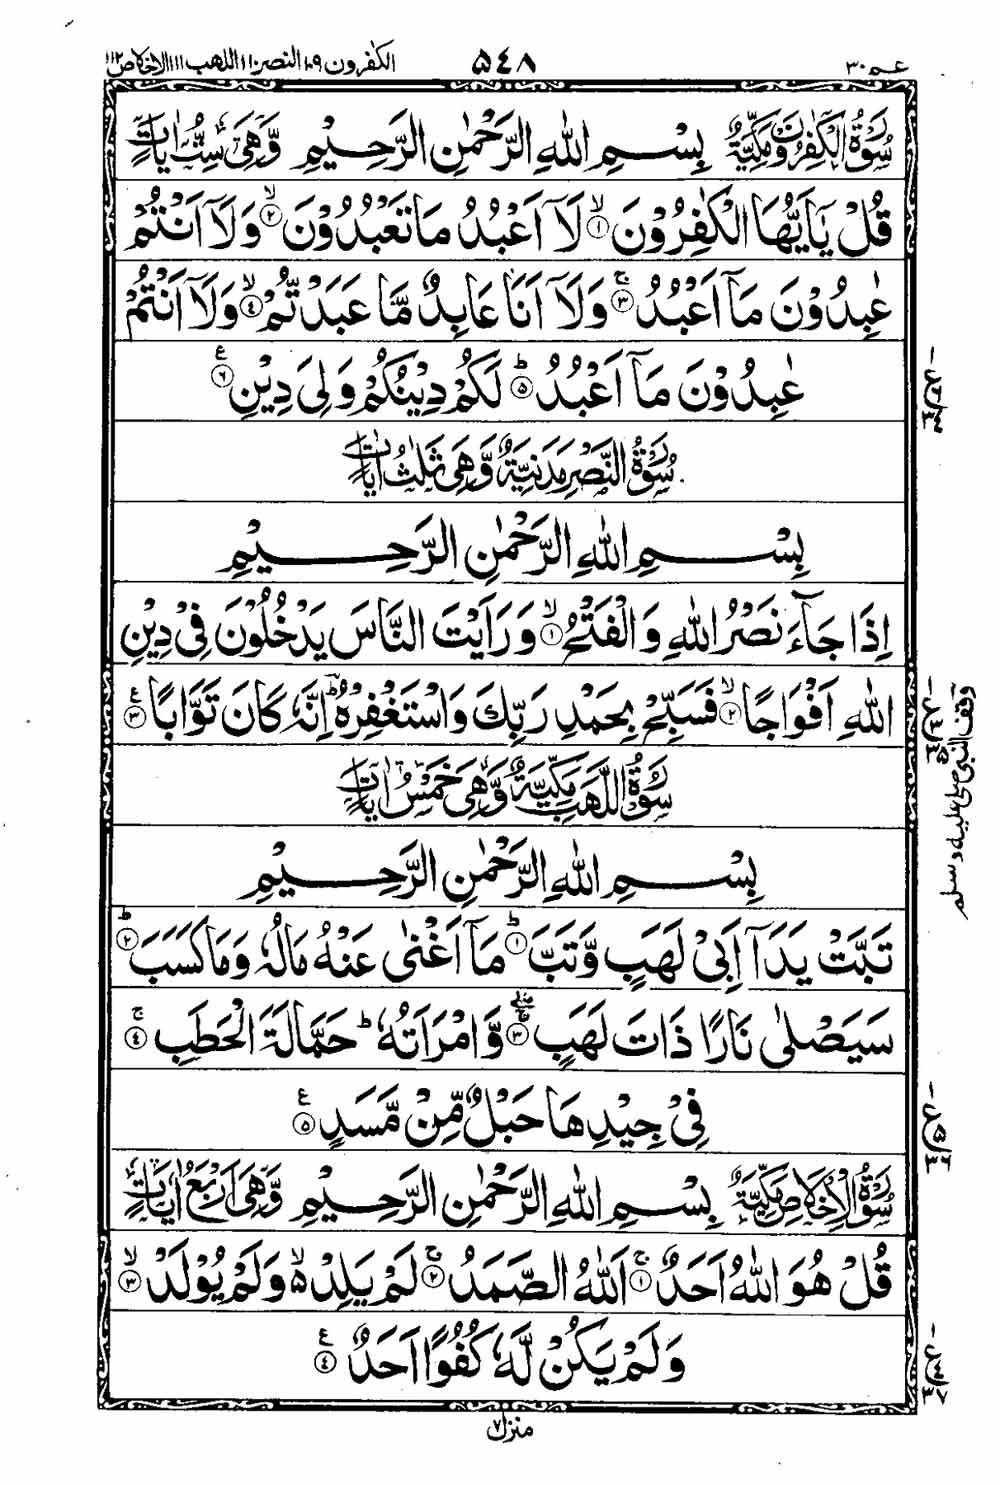 عم ٣٠
٥٤٨
الكفرون ١٠٩ النصر ١١٠ اللهب ١١١ الاخلاص ١١٢
سُوْرَةُ الْكٰفِرُوْنَ مَكِّيَّةٌ بِسْمِ اللّٰهِ الرَّحْمٰنِ الرَّحِيْمِ وَّهِيَ سِتُّ اٰيَاتٍ
قُلْ يٰٓاَيُّهَا الْكٰفِرُوْنَ ۙ١ لَآ اَعْبُدُ مَا تَعْبُدُوْنَ ۙ٢ وَلَآ اَنْتُمْ
عٰبِدُوْنَ مَآ اَعْبُدُ ۚ٣ وَلَآ اَنَا عَابِدٌ مَّا عَبَدْتُّمْ ۙ٤ وَلَآ اَنْتُمْ
عٰبِدُوْنَ مَآ اَعْبُدُ ؕ٥ لَكُمْ دِيْنُكُمْ وَلِيَ دِيْنِ ٦ ع
سُوْرَةُ النَّصْرِ مَدَنِيَّةٌ وَّهِيَ ثَلٰثُ اٰيَاتٍ
بِسْمِ اللّٰهِ الرَّحْمٰنِ الرَّحِيْمِ
اِذَا جَآءَ نَصْرُ اللّٰهِ وَالْفَتْحُ ۙ١ وَرَاَيْتَ النَّاسَ يَدْخُلُوْنَ فِيْ دِيْنِ
اللّٰهِ اَفْوَاجًا ۙ٢ فَسَبِّحْ بِحَمْدِ رَبِّكَ وَاسْتَغْفِرْهُ ؕ اِنَّهٗ كَانَ تَوَّابًا ٣ ع
سُوْرَةُ اللَّهَبِ مَكِّيَّةٌ وَّهِيَ خَمْسُ اٰيَاتٍ
بِسْمِ اللّٰهِ الرَّحْمٰنِ الرَّحِيْمِ
تَبَّتْ يَدَآ اَبِيْ لَهَبٍ وَّتَبَّ ؕ١ مَآ اَغْنٰى عَنْهُ مَالُهٗ وَمَا كَسَبَ ؕ٢
سَيَصْلٰى نَارًا ذَاتَ لَهَبٍ ۖۚ٣ وَّامْرَاَتُهٗ ؕ حَمَّالَةَ الْحَطَبِ ۚ٤
فِيْ جِيْدِهَا حَبْلٌ مِّنْ مَّسَدٍ ٥ ع
سُوْرَةُ الْاِخْلَاصِ مَكِّيَّةٌ بِسْمِ اللّٰهِ الرَّحْمٰنِ الرَّحِيْمِ وَّهِيَ اَرْبَعُ اٰيَاتٍ
قُلْ هُوَ اللّٰهُ اَحَدٌ ۚ١ اَللّٰهُ الصَّمَدُ ۚ٢ لَمْ يَلِدْ ۙ۬ وَلَمْ يُوْلَدْ ۙ٣
وَلَمْ يَكُنْ لَّهٗ كُفُوًا اَحَدٌ ٤ ع
وقف النبى صلى عليه وسلم
منزل ٧